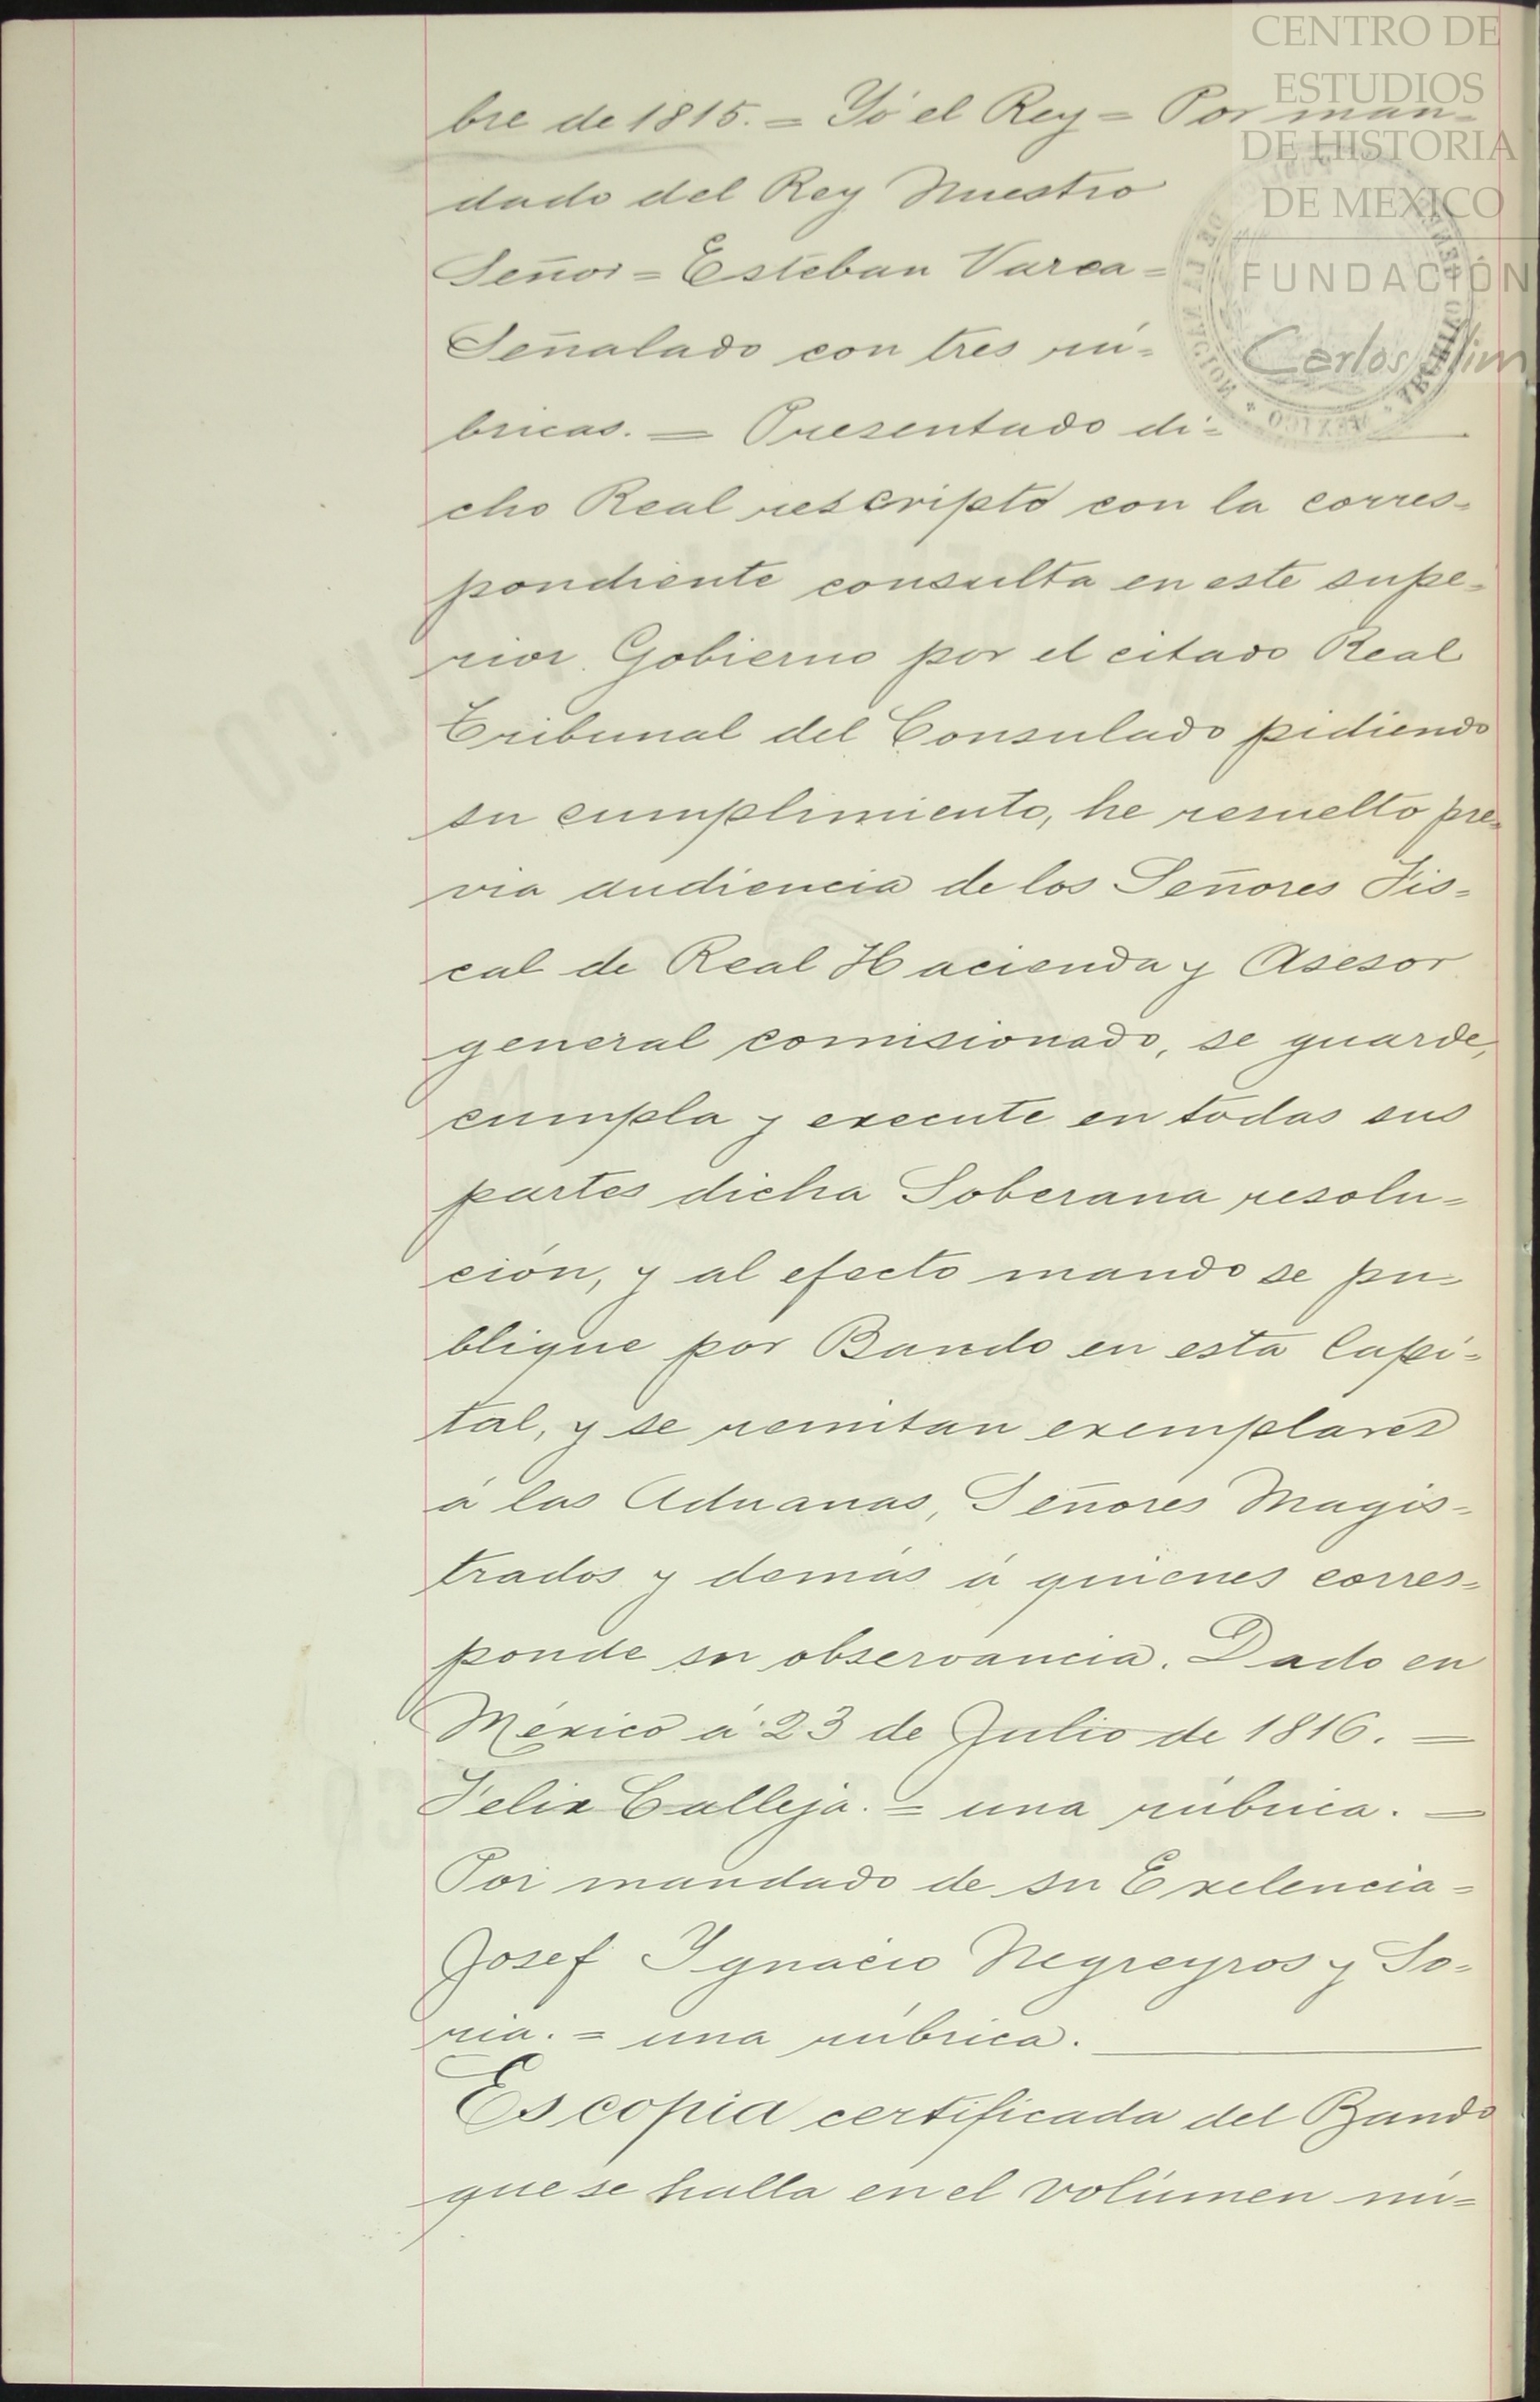 CENTRO DE
ESTUDIOS
DE HISTORIA
DE MEXICO
FUNDACIÓN
Carlos Slim
bre de 1815. = Yó el Rey = Por man=
dado del Rey Nuestro
Señor = Esteban Varea =
Señalado con tres rú=
bricas. = Presentado di=
cho Real rescripto con la corres=
pondiente consulta en este supe=
rior Gobierno por el citado Real
Tribunal del Consulado pidiendo
su cumplimiento, he resuelto pre=
via audiencia de los Señores Fis=
cal de Real Hacienda y Asesor
general comisionado, se guarde,
cumpla y execute en todas sus
partes dicha Soberana resolu=
ción, y al efecto mando se pu=
blique por Bando en esta Capi=
tal, y se remitan exemplares
á las Aduanas, Señores Magis=
trados y demás á quienes corres=
ponde su observancia. Dado en
México á 23 de Julio de 1816. =
Felix Calleja. = una rúbrica. =
Por mandado de su Exelencia =
Josef Ygnacio Negreyros y So=
ria. = una rúbrica.
Es copia certificada del Bando
que se halla en el volúmen nú=